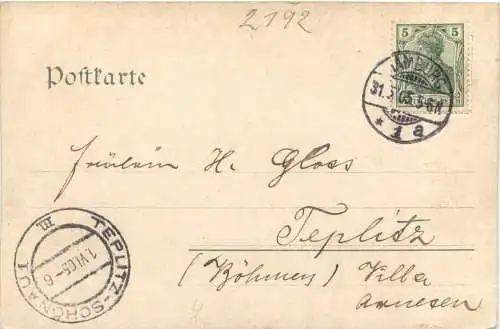 2192
5 5
Postkarte
HAMBURG
31.5.05.5-6N
* 1 a
Fräulein H. Gloss
Teplitz
(Böhmen) Villa
Arnesen
TEPLITZ-SCHÖNAU 1
1.VI.05-6
III